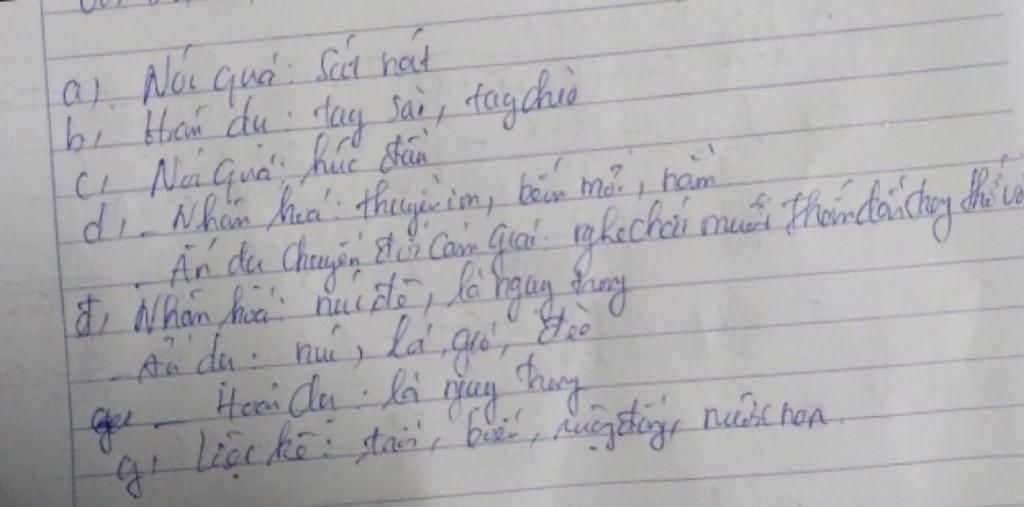 a). Nói quá: Sứt nát
b, Hoán dụ: tay sai, tay chèo
c, Nói Quá: húc đất
d, - Nhân hoá: thuyền im, bến mỏi, nằm
- Ẩn dụ Chuyển đổi Cảm giác: nghe chất muối thấm dần trong thớ vỏ
đ, Nhân hoá: núi đè, lá nguỵ trang
- Ẩn dụ: núi, lá, gió, đèo
- Hoán dụ: lá nguỵ trang
g, Liệt kê: đất, biển, ruộng đồng, nước non